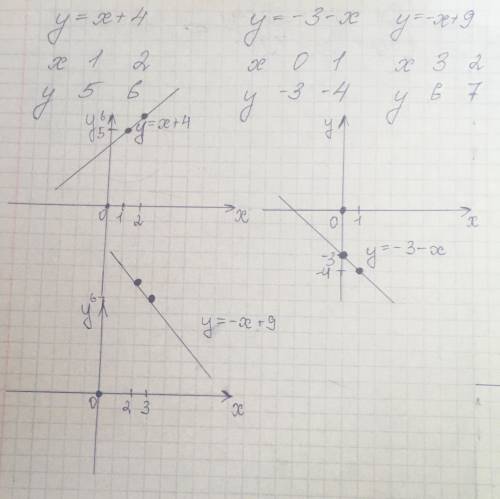 y=x+4 y=-3-x y=-x+9
x 1 2 x 0 1 x 3 2
y 5 6 y -3 -4 y 6 7
y 6
5 y=x+4
0 1 2 x
y
0 1 x
-3 y=-3-x
-4
y 6
y=-x+9
0 2 3 x